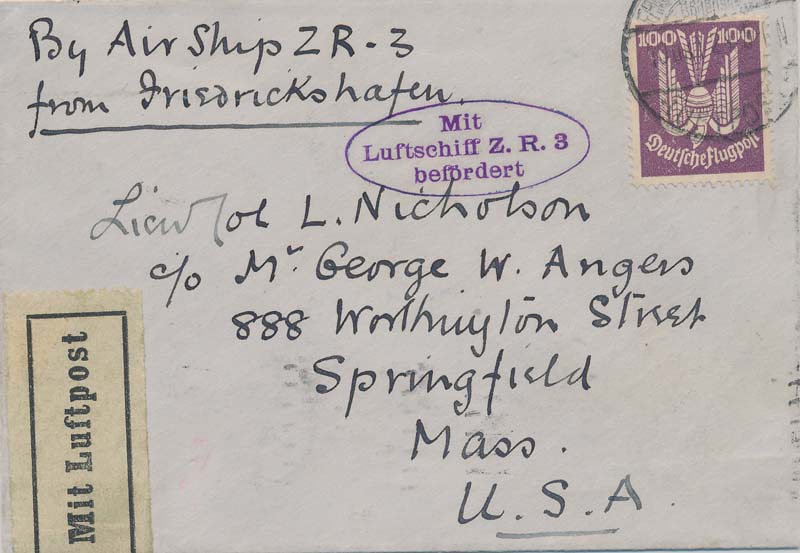 By Air Ship Z R-3
from Friedrickshafen.
Mit
Luftschiff Z. R. 3
befördert
100 100
Deutsche Flugpost
Lieut Col L. Nicholson
c/o Mr. George W. Angers
888 Worthington Street
Springfield
Mass.
U.S.A.
Mit Luftpost